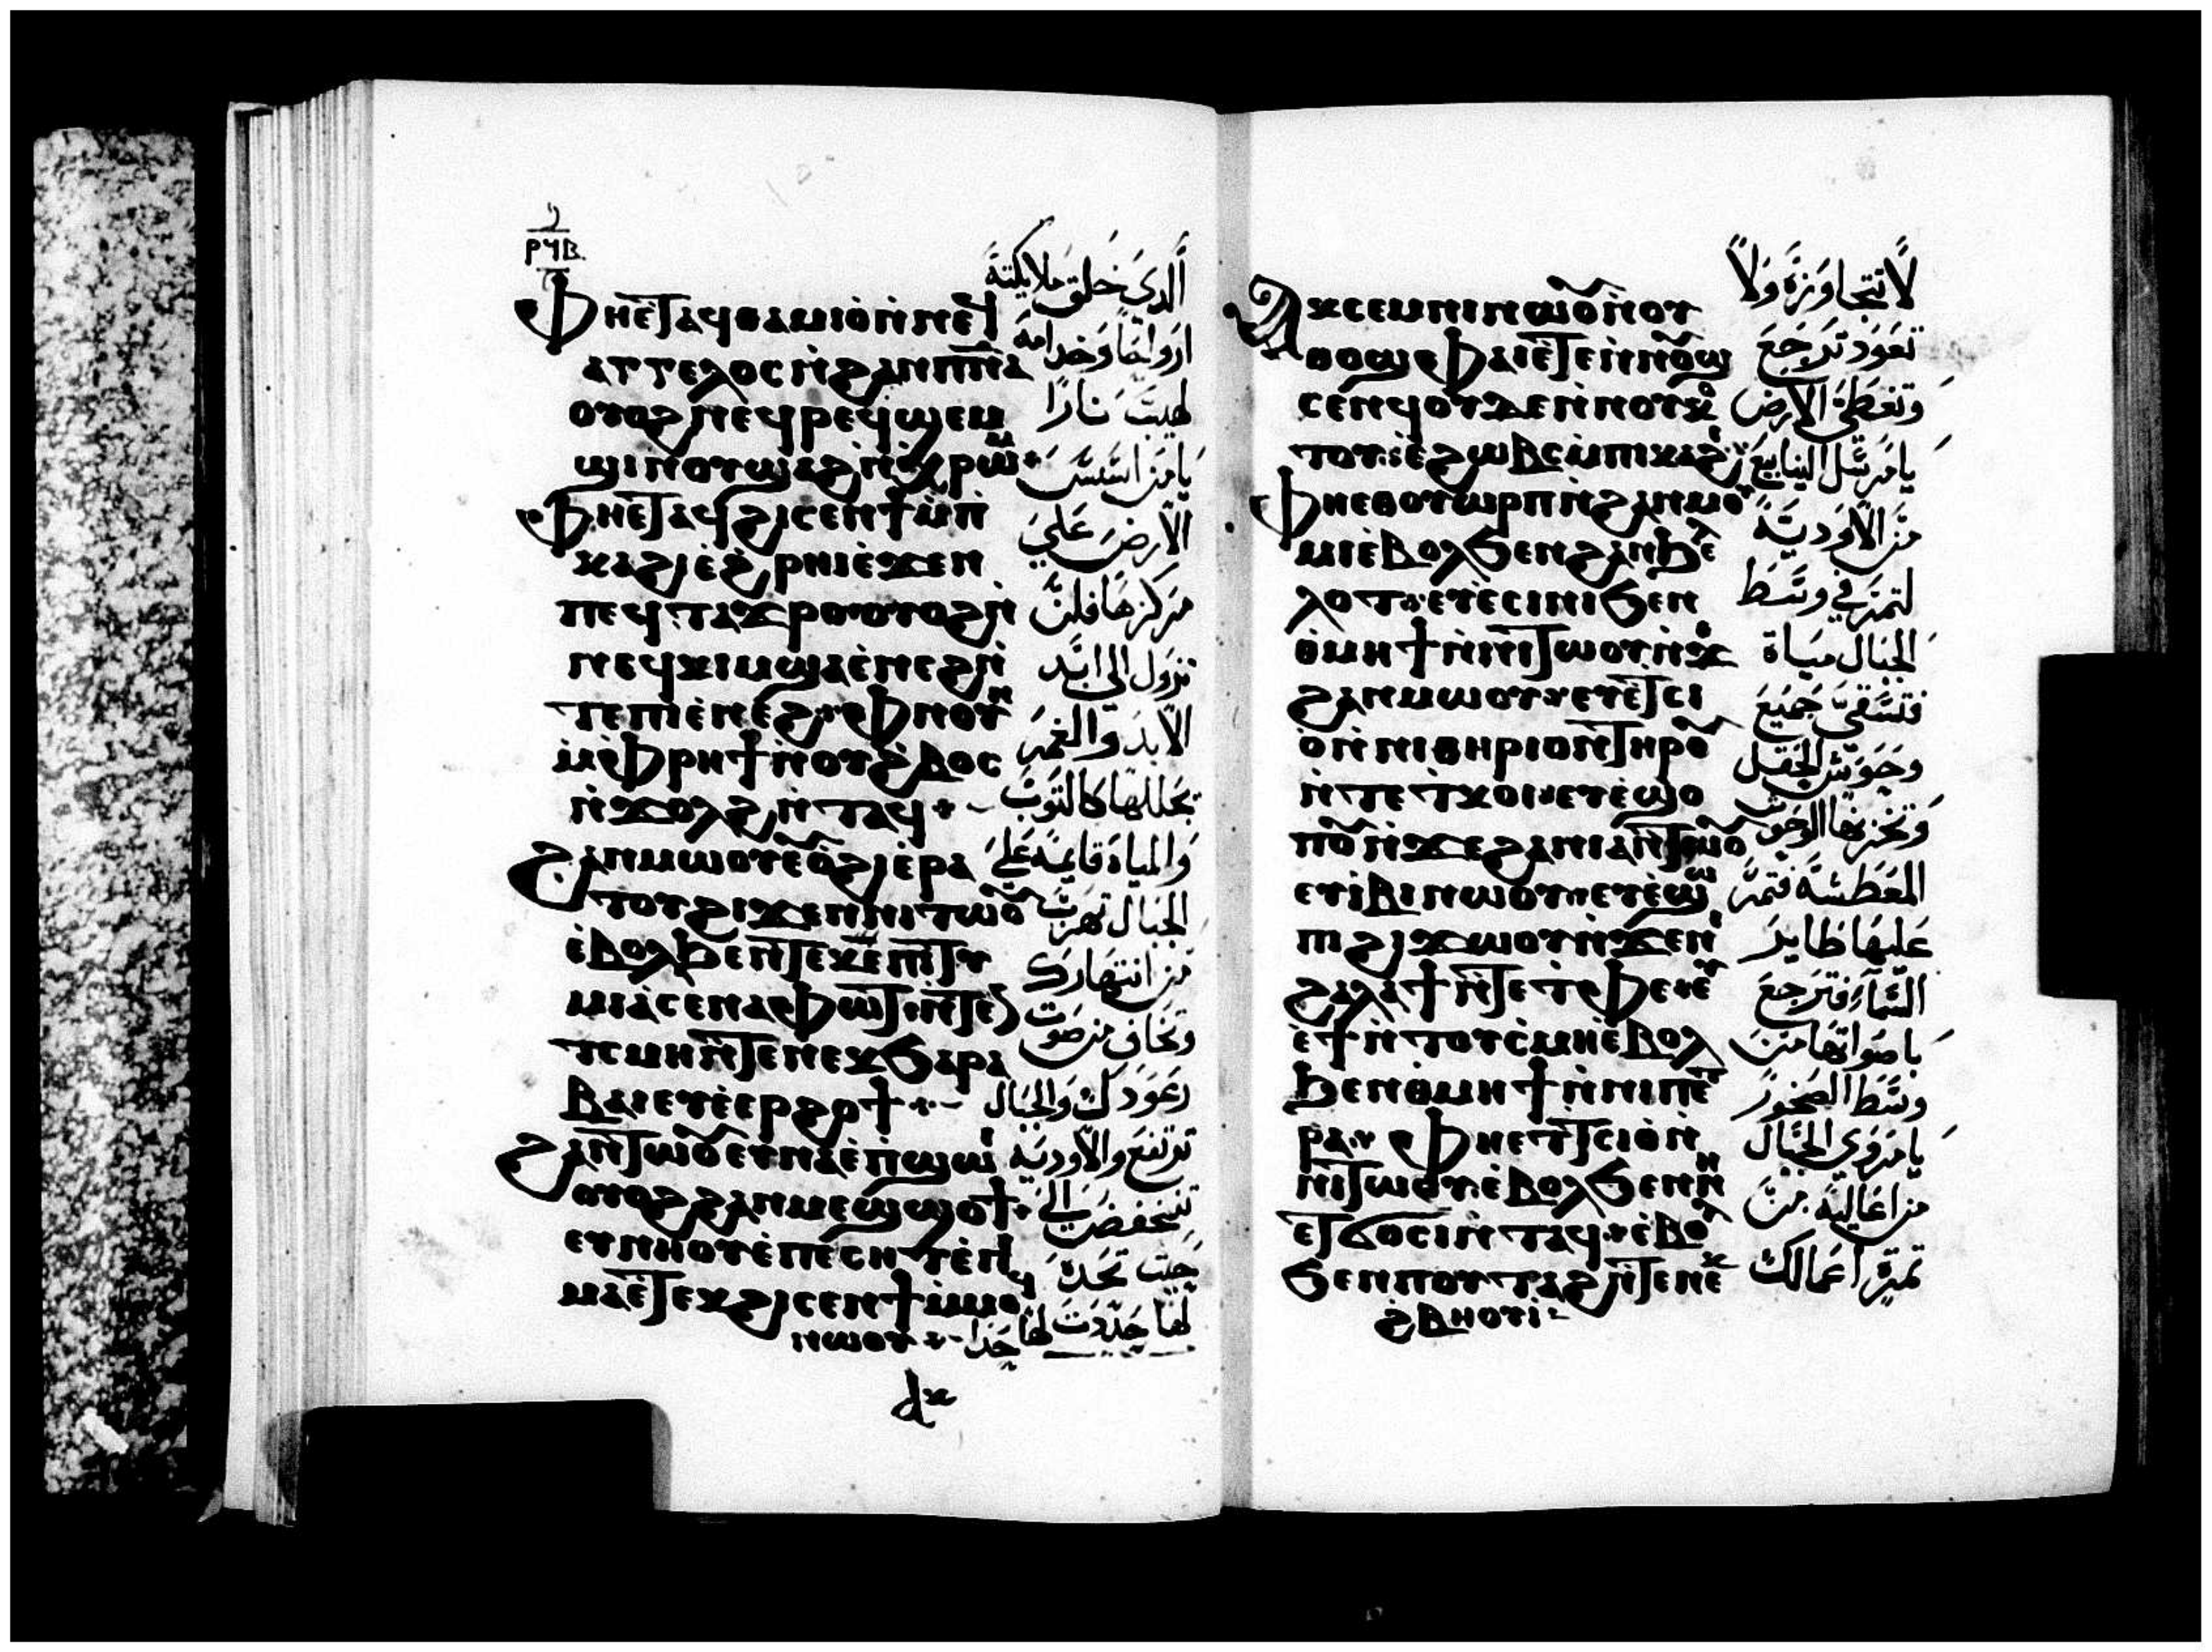 ⲣϥⲃ
ⲫⲏⲉⲧⲁϥⲑⲁⲙⲓⲟⲛⲛⲉϥ
ⲁⲅⲅⲉⲗⲟⲥⲛϩⲁⲛⲡⲛⲁ
ⲟⲩⲟϩⲛⲉϥⲣⲉϥϣⲉⲙ
ϣⲓⲛⲟⲩϣⲁϩⲛⲭⲣⲱⲙ
ⲫⲏⲉⲧⲁϥϩⲓⲥⲉⲛϯⲙⲡ
ⲕⲁϩⲓⲉϩⲣⲏⲓⲉϫⲉⲛ
ⲡⲉϥⲧⲁϫⲣⲟⲟⲩⲟϩⲛ
ⲛⲉϥⲕⲓⲙϣⲁⲉⲛⲉϩⲛ
ⲧⲉⲡⲓⲉⲛⲉϩⲫⲛⲟⲩⲛ
ⲙⲫⲣⲏϯⲛⲟⲩϩⲃⲟⲥ
ⲛϫⲟⲗϩⲛⲧⲁϥ
ϩⲁⲛⲙⲱⲟⲩⲉⲩⲟϩⲓⲉⲣⲁ
ⲧⲟⲩϩⲓϫⲉⲛⲛⲓⲧⲱⲟⲩ
ⲉⲃⲟⲗϧⲉⲛⲧⲉⲕⲉⲡⲓⲧⲩ
ⲙⲓⲁⲥⲉⲛⲁⲫⲱⲧⲛⲧⲉ
ⲧⲥⲙⲏⲛⲧⲉⲛⲉⲕϧⲁⲣⲁ
ⲃⲁⲓⲉⲩⲉⲉⲣϩⲟϯ
ϩⲁⲛⲧⲱⲟⲩⲉⲩⲛⲁⲉⲡϣⲱⲓ
ⲟⲩⲟϩϩⲁⲛⲙⲉϣϣⲟϯ
ⲉⲩⲛⲏⲟⲩⲉⲡⲉⲥⲏⲧⲉⲡⲓ
ⲙⲁⲉⲧⲉⲕϩⲓⲥⲉⲛϯⲙⲙⲟϥ
ⲛⲱⲟⲩ
الذى خلق ملايكته
ارواحًا وخدامه
لهيب نارًا
يا من اسس
الارض على
مركزها فلن
تزول الى ابد
الابد والغمر
يجللها كالثوب
والمياه قايمة على
الجبال تهرب
من انتهارك
وتخاف من صوت
رعودك والجبال
ترتفع والاودية
تنخفض الى
حيث تحده
لها حددت لها حدا
ⲁⲕⲥⲉⲙⲛⲓⲛⲱⲟⲩⲛⲟⲩ
ⲑⲟϣⲫⲁⲓⲉⲧⲉⲛⲛⲟⲩϣ
ⲥⲉⲛϥⲟⲩⲇⲉⲛⲛⲟⲩⲕⲟ
ⲧⲟⲩⲉϩⲱⲃⲥⲙⲡⲓⲕⲁϩⲓ
ⲫⲏⲉⲑⲟⲩⲱⲣⲡⲛϩⲁⲛⲙⲟⲩ
ⲙⲓⲉⲃⲟⲗϧⲉⲛϩⲁⲛϧⲉ
ⲗⲟⲧⲉⲩⲉⲥⲓⲛⲓϧⲉⲛ
ⲑⲙⲏϯⲛⲛⲓⲧⲱⲟⲩⲛϫⲉ
ϩⲁⲛⲙⲱⲟⲩⲉⲩⲉⲧⲥⲓ
ⲟⲛⲛⲓⲑⲏⲣⲓⲟⲛⲧⲏⲣⲟⲩ
ⲛⲧⲉⲧⲕⲟⲓⲉⲩⲉϣⲟ
ⲡⲟⲩⲛϫⲉϩⲁⲛⲓⲁⲛⲧⲱⲟⲩ
ⲉⲩⲓⲃⲓⲛⲱⲟⲩⲉⲩⲉⲱ
ⲡⲓϩⲓϫⲱⲟⲩⲛϫⲉⲛⲓ
ϩⲁⲗⲁϯⲛⲧⲉⲧⲫⲉⲉⲩ
ⲉϯⲛⲧⲟⲩⲥⲙⲏⲉⲃⲟⲗ
ϧⲉⲛⲑⲙⲏϯⲛⲛⲓⲡⲉⲧ
ⲣⲁⲫⲏⲉⲧⲧⲥⲓⲟⲛ
ⲛⲓⲧⲱⲟⲩⲉⲃⲟⲗϧⲉⲛⲛⲏ
ⲉⲧϭⲟⲥⲓⲛⲧⲁϥⲉⲃⲟⲗ
ϧⲉⲛⲡⲟⲩⲧⲁϩⲛⲧⲉⲛⲉⲕ
ϩⲃⲏⲟⲩⲓ
لا تتجاوزه ولا
تعود ترجع
وتغطى الارض
يا مرسل الينابيع
من الاودية
لتمر فى وسط
الجبال مياه
فتسقى جميع
وحوش الحقل
المعطشة فتمر
عليها طاير
السماء فترجع
باصواتها من
وسط الصخور
يا مروى الجبال
من اعاليه من
ثمرة اعمالك